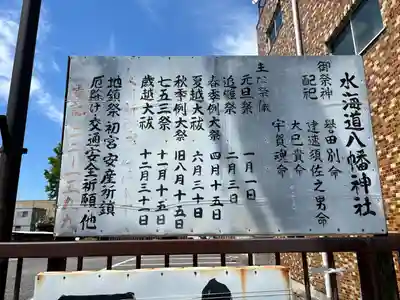 水海道八幡神社
御祭神 誉田別命
配祀 建速須佐之男命
大己貴命
宇賀魂命
主な祭儀
元旦祭 一月一日
追儺祭 二月三日
春季例大祭 四月十五日
夏越大祓 六月三十日
秋季例大祭 旧八月十五日
七五三祭 十一月十五日
歳越大祓 十二月三十一日
地鎮祭・初宮・安産祈願
厄除け・交通安全祈願 他